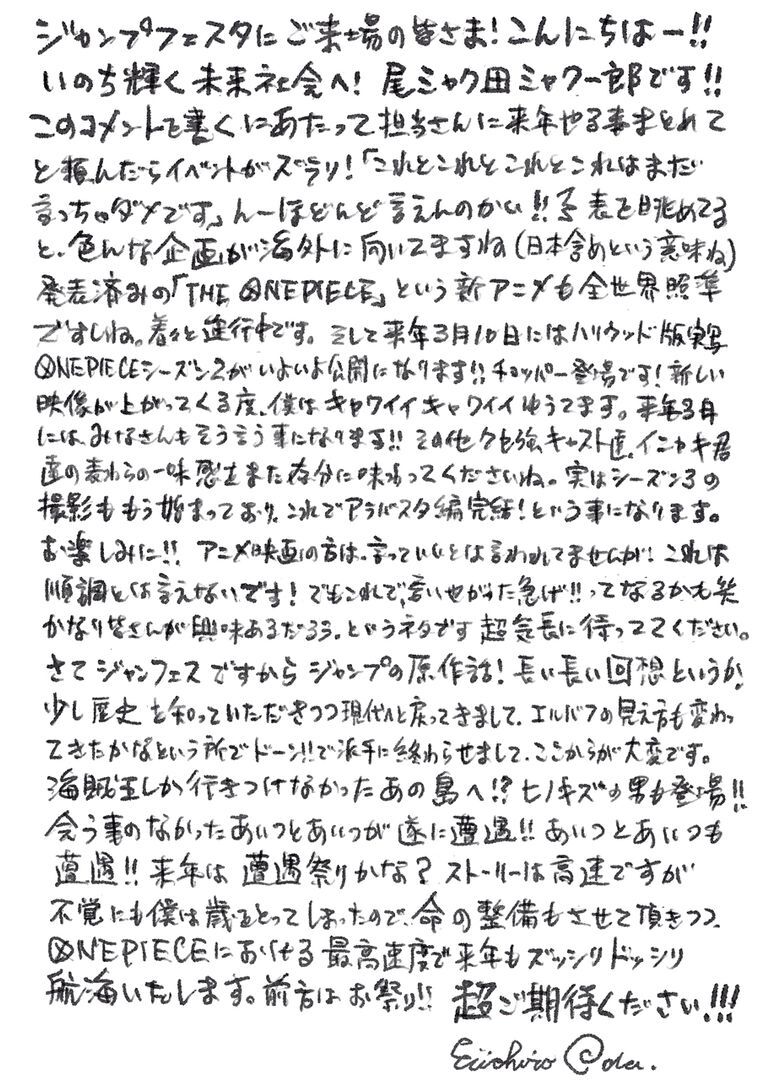 ジャンプフェスタにご来場の皆さま!こんにちはー!!
いのち輝く未来社会へ! 尾ミャク田ミャク一郎です!!
このコメントを書くにあたって担当さんに来年やる事まとめて
と頼んだらイベントがズラリ!「これとこれとこれとこれはまだ
言っちゃダメです」んーほとんど言えんのかい!!予表を眺めてる
と、色んな企画が海外に向いてますね(日本含めという意味ね)
発表済みの「THE ONE PIECE」という新アニメも全世界照準
ですしね。着々と進行中です。そして来年3月10日にはハリウッド版実写
ONE PIECEシーズン2がいよいよ公開になります!!チョッパー登場です!新しい
映像が上がってくる度、僕はキャワイイキャワイイゆうてます。来年3月
には、みなさんもそう言う事になります!!その他クセ強キャスト達、イニャキ君
達の麦わらの一味感もまた存分に味わってくださいね。実はシーズン3の
撮影ももう始まっており、これでアラバスタ編完結!という事になります。
お楽しみに!! アニメ映画の方は、言っていいとは言われてませんが!これは
順調とは言えないです!でもこれで、言いやがった急げ!!ってなるかも笑
かなり皆さんが興味あるだろう、というネタです 超気長に待っててください。
さてジャンフェスですからジャンプの原作話!長い長い回想というか、
少し歴史を知っていただきつつ現代へと戻ってきまして、エルバフの見え方も変わっ
てきたかなという所でドーン!!で派手に終わらせまして、ここからが大変です。
海賊王しか行きつけなかったあの島へ!?ヒノキズの男も登場!!
会う事のなかったあいつとあいつが遂に遭遇!!あいつとあいつも
遭遇!!来年は遭遇祭りかな?ストーリーは高速ですが
不覚にも僕は歳をとってしまったので、命の整備もさせて頂きつつ、
ONE PIECEにおける最高速度で来年もズッシリドッシリ
航海いたします。前方はお祭り!! 超ご期待ください!!!
Eiichiro Oda.